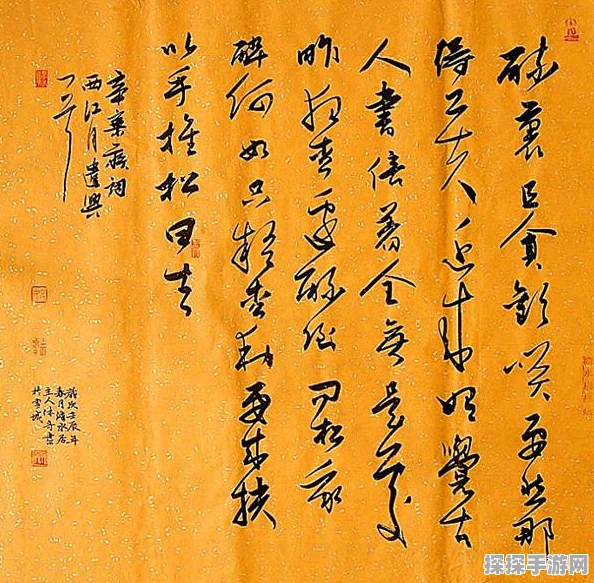 醉裏且貪歡笑要愁那
得工夫近来始覺古
人書信著全無是處
昨夜松邊醉倒问松我
醉何如只疑松動要来扶
以手推松曰去
辛棄疾詞
西江月遣興
歲次壬辰年
春月
主人
探探手游网